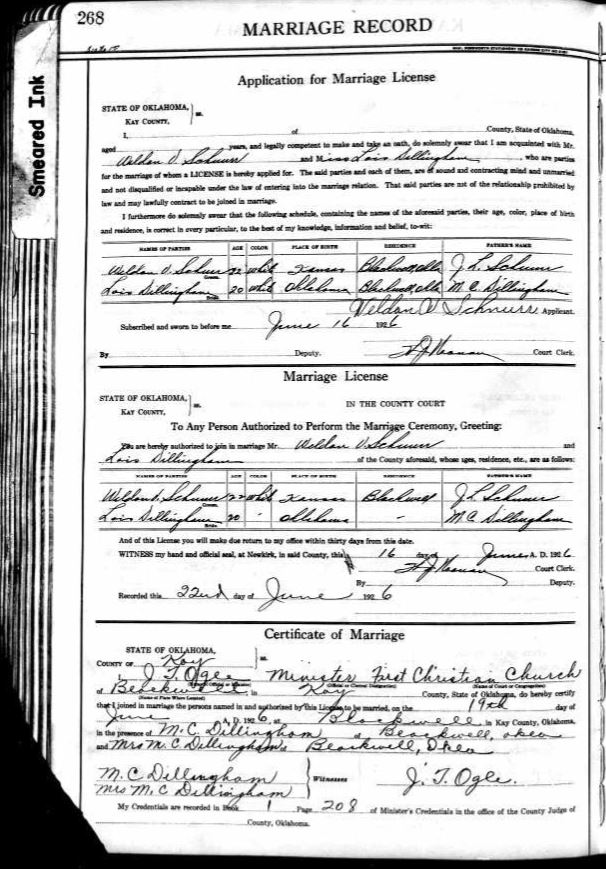 268
MARRIAGE RECORD
Smeared Ink
Application for Marriage License
STATE OF OKLAHOMA,
KAY COUNTY, } ss.
I, of County, State of Oklahoma,
aged years, and legally competent to make and take an oath, do solemnly swear that I am acquainted with Mr.
Weldon V. Schnurr and Miss Lois Dillingham, who are parties
for the marriage of whom a LICENSE is hereby applied for. The said parties and each of them, are of sound and contracting mind and unmarried
and not disqualified or incapable under the law of entering into the marriage relation. That said parties are not of the relationship prohibited by
law and may lawfully contract to be joined in marriage.
I furthermore do solemnly swear that the following schedule, containing the names of the aforesaid parties, their age, color, place of birth
and residence, is correct in every particular, to the best of my knowledge, information and belief, to-wit:
NAMES OF PARTIES AGE COLOR PLACE OF BIRTH RESIDENCE FATHER'S NAME
Weldon V. Schnurr Groom 22 White Kansas Blackwell, Okla J. L. Schnurr
Lois Dillingham Bride 20 White Oklahoma Blackwell, Okla M. C. Dillingham
Weldon V Schnurr Applicant.
Subscribed and sworn to before me June 16 1926
By Deputy. Court Clerk.
Marriage License
STATE OF OKLAHOMA,
KAY COUNTY, } ss. IN THE COUNTY COURT
To Any Person Authorized to Perform the Marriage Ceremony, Greeting:
You are hereby authorized to join in marriage Mr. Weldon V. Schnurr and
Lois Dillingham of the County aforesaid, whose ages, residence, etc., are as follows:
NAMES OF PARTIES AGE COLOR PLACE OF BIRTH RESIDENCE FATHER'S NAME
Weldon V. Schnurr Groom 22 White Kansas Blackwell J. L. Schnurr
Lois Dillingham Bride 20 - Oklahoma - M C Dillingham
And of this License you will make due return to my office within thirty days from this date.
WITNESS my hand and official seal, at Newkirk, in said County, this 16 day of June A. D. 1926
Court Clerk.
By Deputy.
Recorded this 22nd day of June 1926
Certificate of Marriage
STATE OF OKLAHOMA,
COUNTY OF Kay } ss.
I, J. T. Ogle Minister First Christian Church
of Blackwell in Kay County, State of Oklahoma, do hereby certify
that I joined in marriage the persons named in and authorized by this License to be married, on the 19th day of
June A. D. 1926, at Blackwell in Kay County, Oklahoma,
in the presence of M. C. Dillingham of Blackwell, Okla
and Mrs M. C. Dillingham of Blackwell, Okla
M. C Dillingham
Mrs M. C Dillingham } Witnesses J. T. Ogle.
My Credentials are recorded in Book 1 Page 208 of Minister's Credentials in the office of the County Judge of
County, Oklahoma.